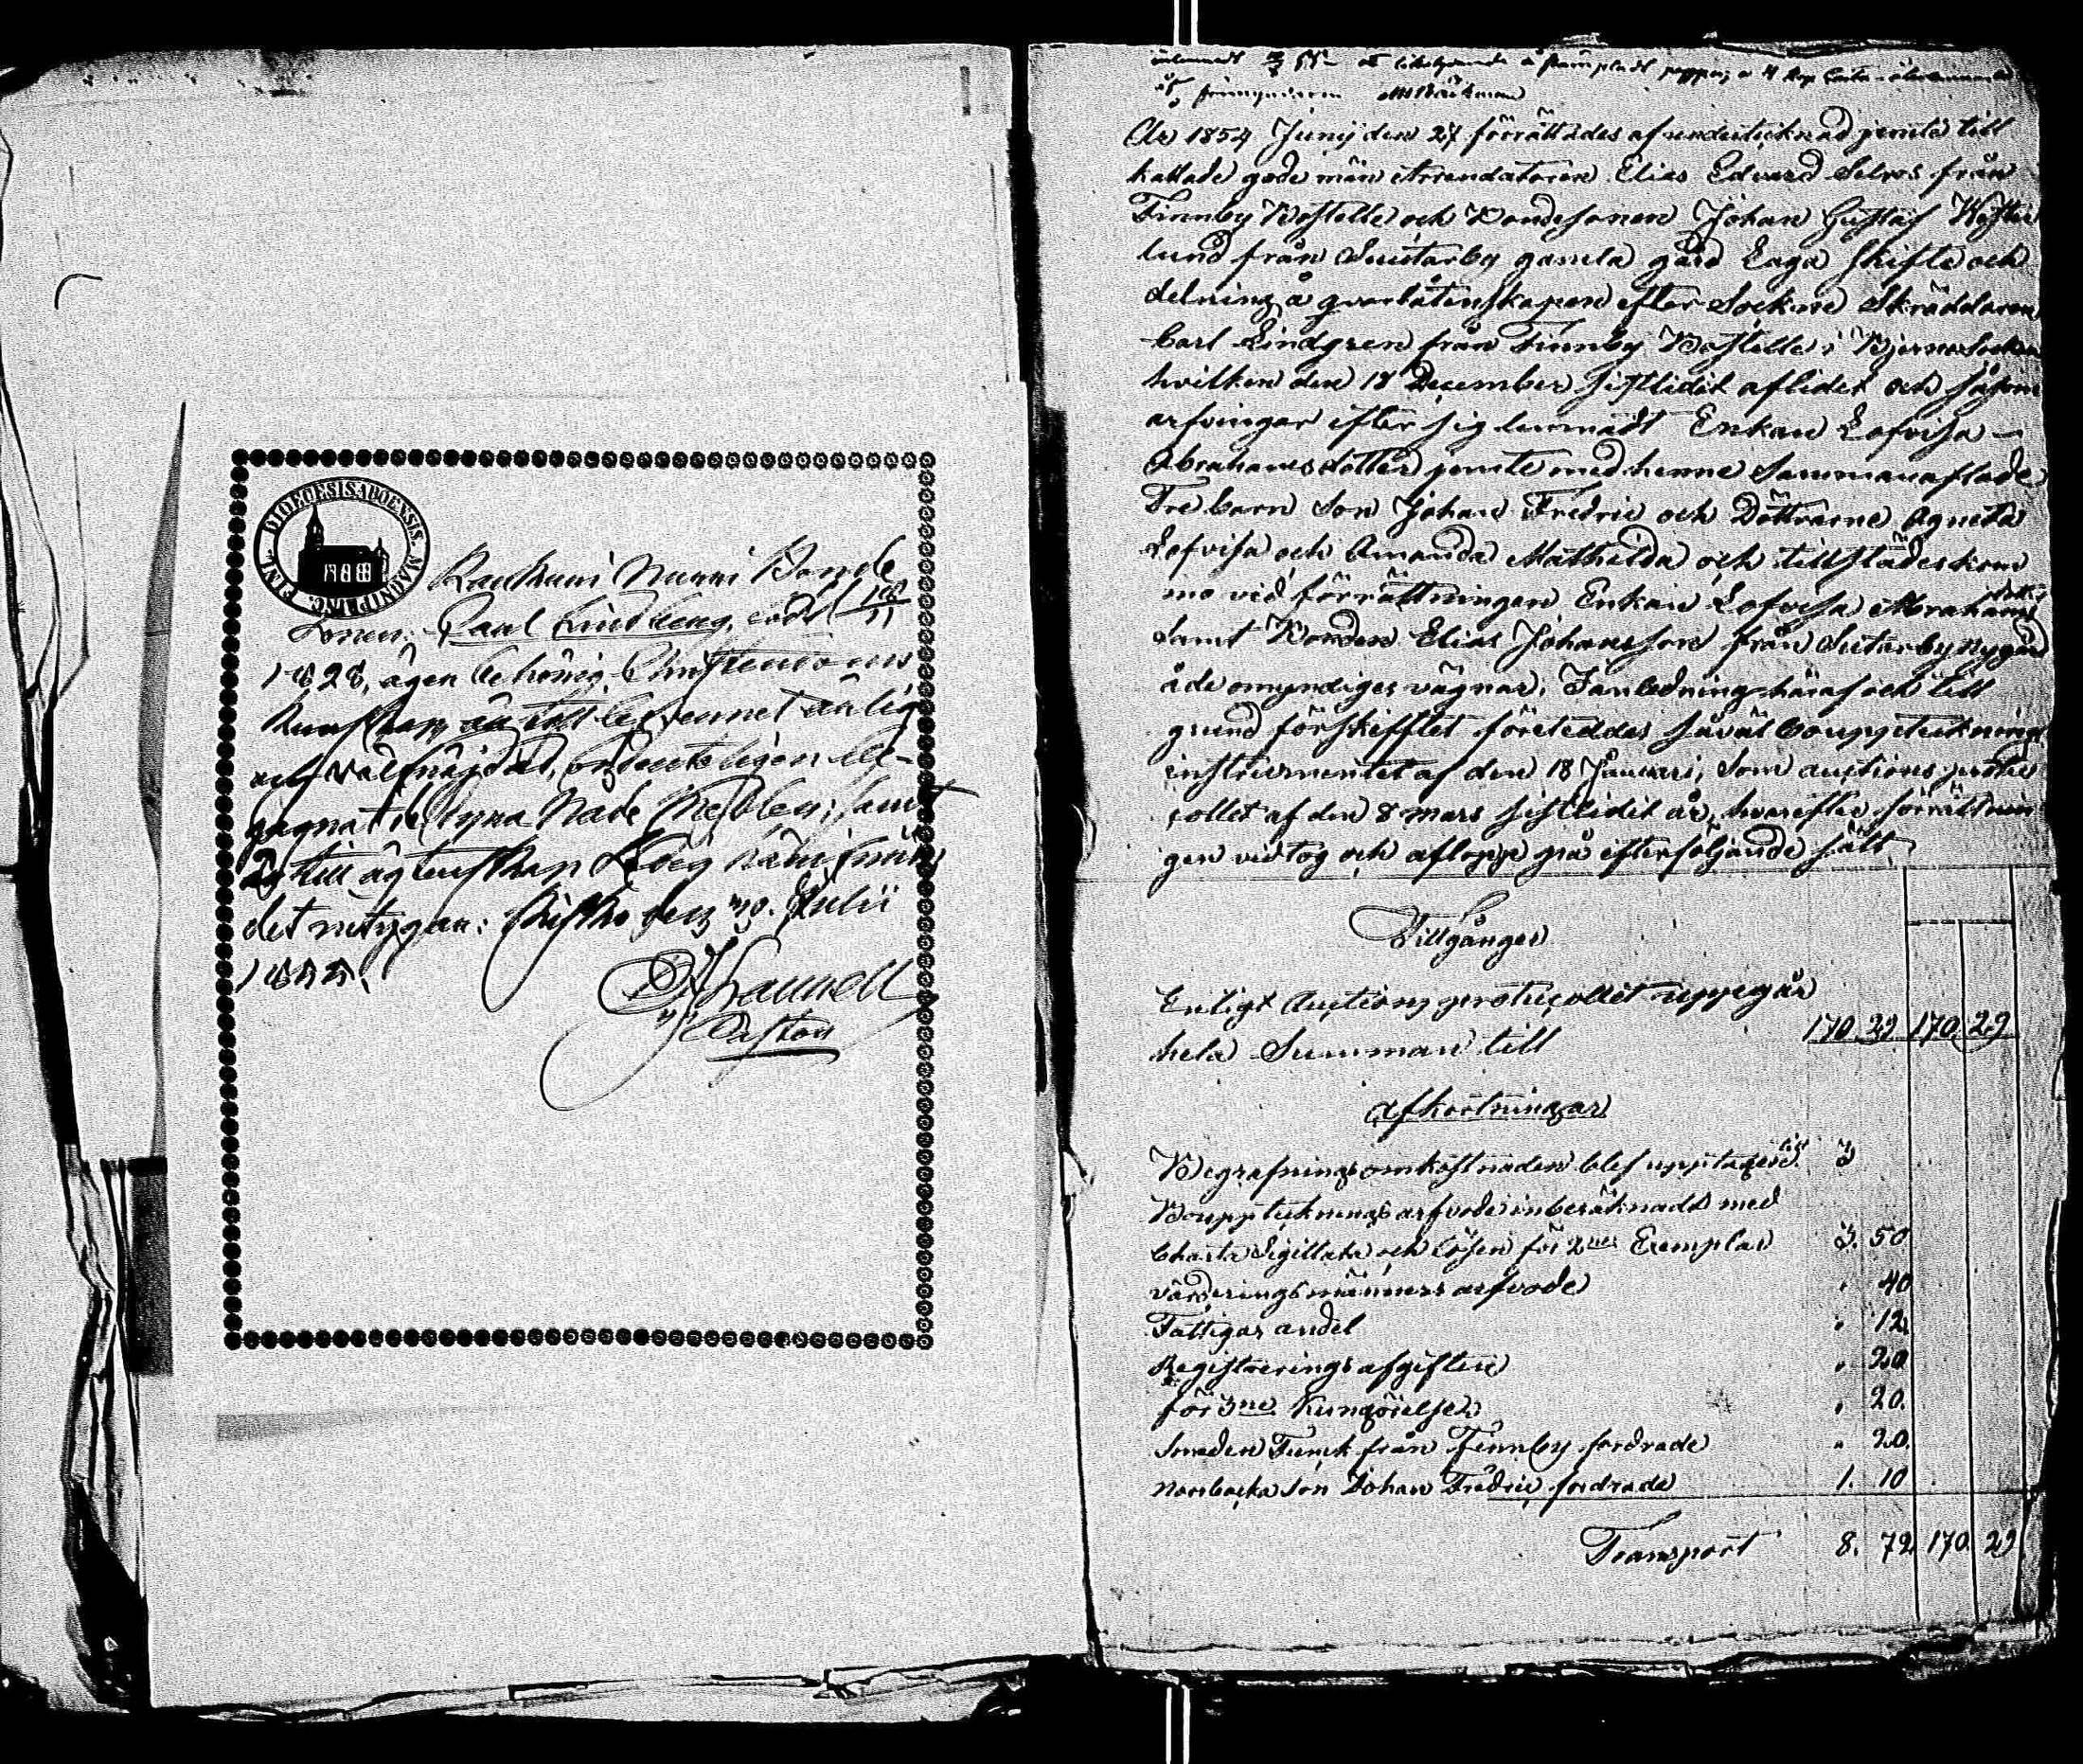 DIOECESIS ABOENSIS. MAGNI PRINC. FINL.
Bonde
Sonen: Carl Lindberg, född
1828, äger behörig Christendoms
kunskap, är till lefvernet ärlig
och välfräjdad, ordenteligen be-
gagnat de dyra Nåde Medlen; samt
är till ägtenskap ledig härifrån
det intygar: den 30. Julii
Pastor
År 1854 Junij den 27 förrättades af undertecknad jemte till
kallade gode män Arrendatoren Elias Edvard Selros från
Finnby Boställe och Bondesonen Johan Gustaf Wester
lund från Suutarby gamla gård Laga skifte och
delning å qvarlåtenskapen efter Sockne Skräddaren
Carl Lindgren från Finnby Boställe i Bjerno Socken
hvilken den 18 December sistlidit aflidet och såsom
arfvingar efter sig lemnadt Enkan Lofvisa
Abrahamsdotter jemte med henne Sammanaflade
Tre barn Son Johan Fredric och Döttrarne Agneta
Lofvisa och Amanda Mathilda och tillstädeskom
mo vid förrättningen Enkan Lofvisa Abrahams dotter
samt Bonden Elias Johansson från Sutarby nygård
å de omyndiges vägnar, I anledning häraf och till
grund för skifftet företeddes såväl bouppteknings
instrumentet af den 18 Januari, som auctions proto
collet af den 8 Mars sistlidit år, hvarefter förrättnin
gen vidtog och aflopp på efterföljande sätt
Tillgånger
Enligt Auctions protocollet uppgår
hela Summan till 170. 29 170. 29
Afkortningar
Begrafnings omkostnaden blef upptagen till 3
Bouppteknings arfvode inberäknadt med
Charta Sigillata och lösen för 2ne Exemplar 3. 50
värderings männers arfvode " 40
Fattigas andel " 12
Registrerings afgiften " 20
för 3ne Kungörelser " 20.
Smeden Funck från Finnby fordrade " 20.
Norrbacka Son Johan Fredric fordrade 1. 10
Transport 8. 72 170. 29